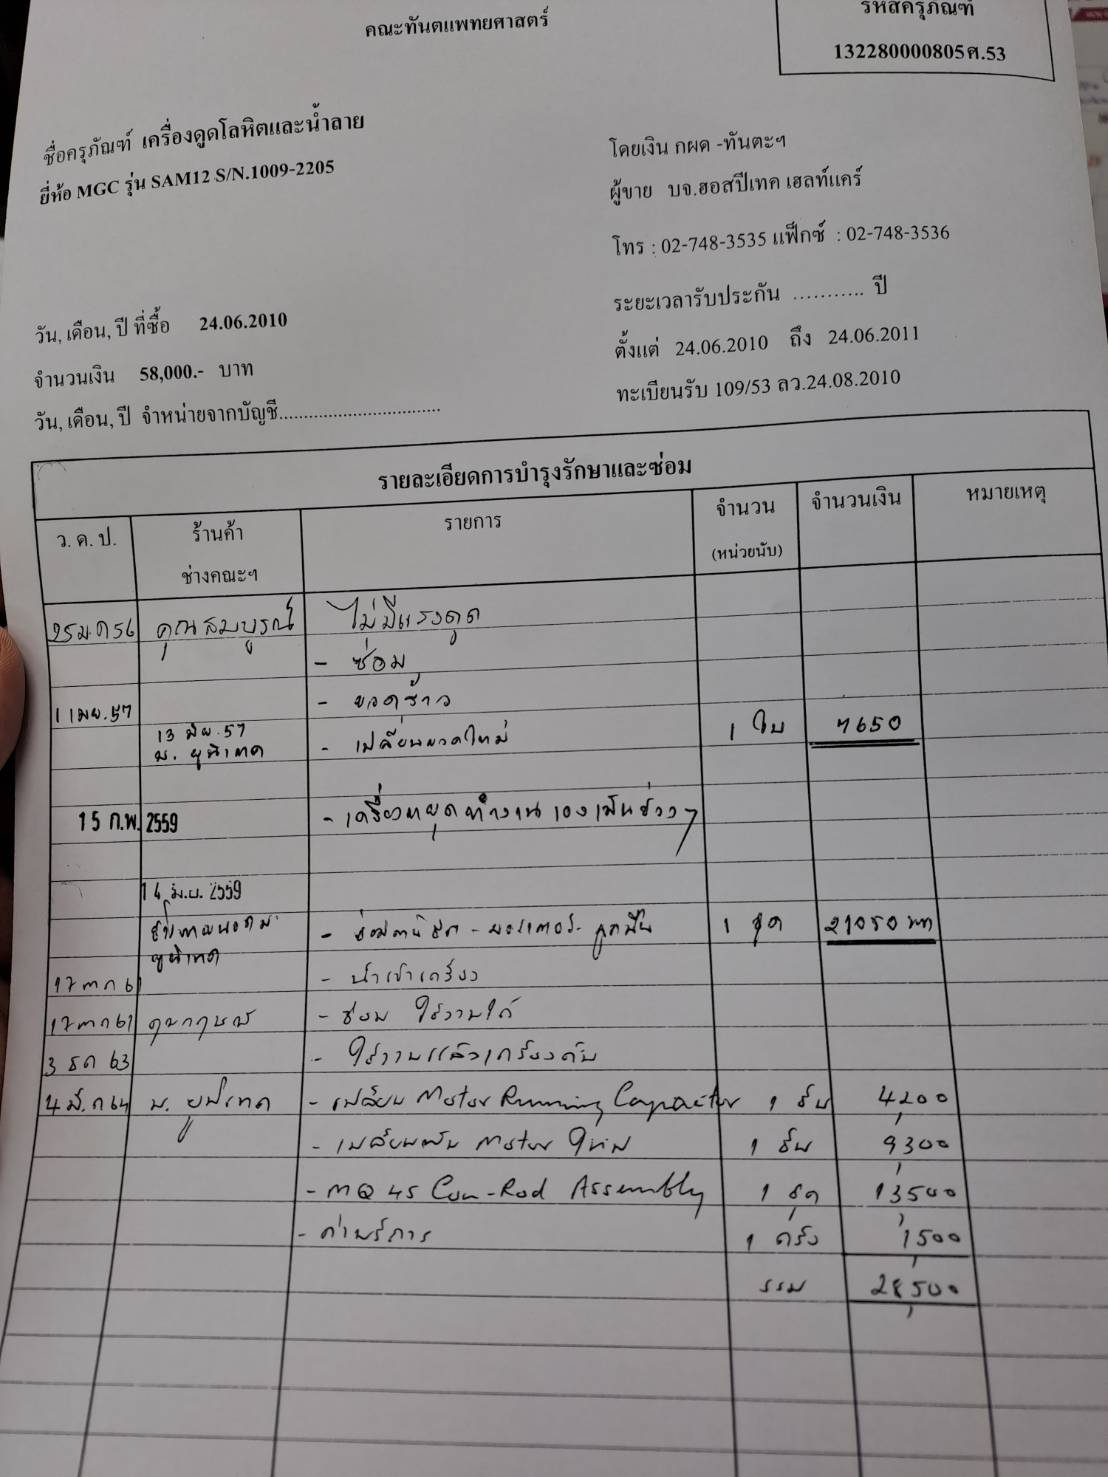 คณะทันตแพทยศาสตร์
รหัสครุภัณฑ์
132280000805ศ.53
ชื่อครุภัณฑ์ เครื่องดูดโลหิตและน้ำลาย
ยี่ห้อ MGC รุ่น SAM12 S/N.1009-2205
โดยเงิน กผด -ทันตะฯ
ผู้ขาย บจ.ฮอสปิเทค เฮลท์แคร์
โทร : 02-748-3535 แฟ็กซ์ : 02-748-3536
ระยะเวลารับประกัน ........... ปี
วัน, เดือน, ปี ที่ซื้อ 24.06.2010
ตั้งแต่ 24.06.2010 ถึง 24.06.2011
จำนวนเงิน 58,000.- บาท
ทะเบียนรับ 109/53 ลว.24.08.2010
วัน, เดือน, ปี จำหน่ายจากบัญชี................................
รายละเอียดการบำรุงรักษาและซ่อม
ว. ด. ป. ร้านค้า ช่างคณะฯ รายการ จำนวน (หน่วยนับ) จำนวนเงิน หมายเหตุ
25 ม.ค 56 คุณสมบูรณ์ ไม่มีแรงดูด
- ซ่อม
1 เมย. 57 - ขวดร้าว
13 มิย. 57
บ. ยูนิเทค - เปลี่ยนขวดใหม่ 1 ใบ 7650
15 ก.พ. 2559 - เครื่องหยุดทำงานเองเป็นช่วงๆ
14 มิ.ย. 2559
ยูนิเทค - ลูกปืน 1 ชุด 21050 บาท
17 ตค 61 - นำเข้าเครื่อง
17 ตค 61 - ซ่อม ใช้งานได้
3 ธค 63 - ใช้งานแล้วเครื่องดับ
4 มี.ค 64 บ. ยูนิเทค - เปลี่ยน Motor Running Capacitor 1 ชิ้น 4,200
- เปลี่ยน Motor ใหม่ 1 ชิ้น 9,300
- MQ 45 Con-Rod Assembly 1 ชุด 13,500
- ค่าบริการ 1 ครั้ง 1,500
รวม 28,500